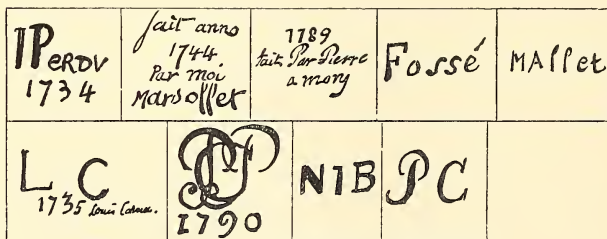 IPERDU
1734
fait anno
1744
Par moi
Marsollet
1789
fait Par Pierre
a mony
Fossé
MAllet
L C
1735 Louis
1790
NIB
PC